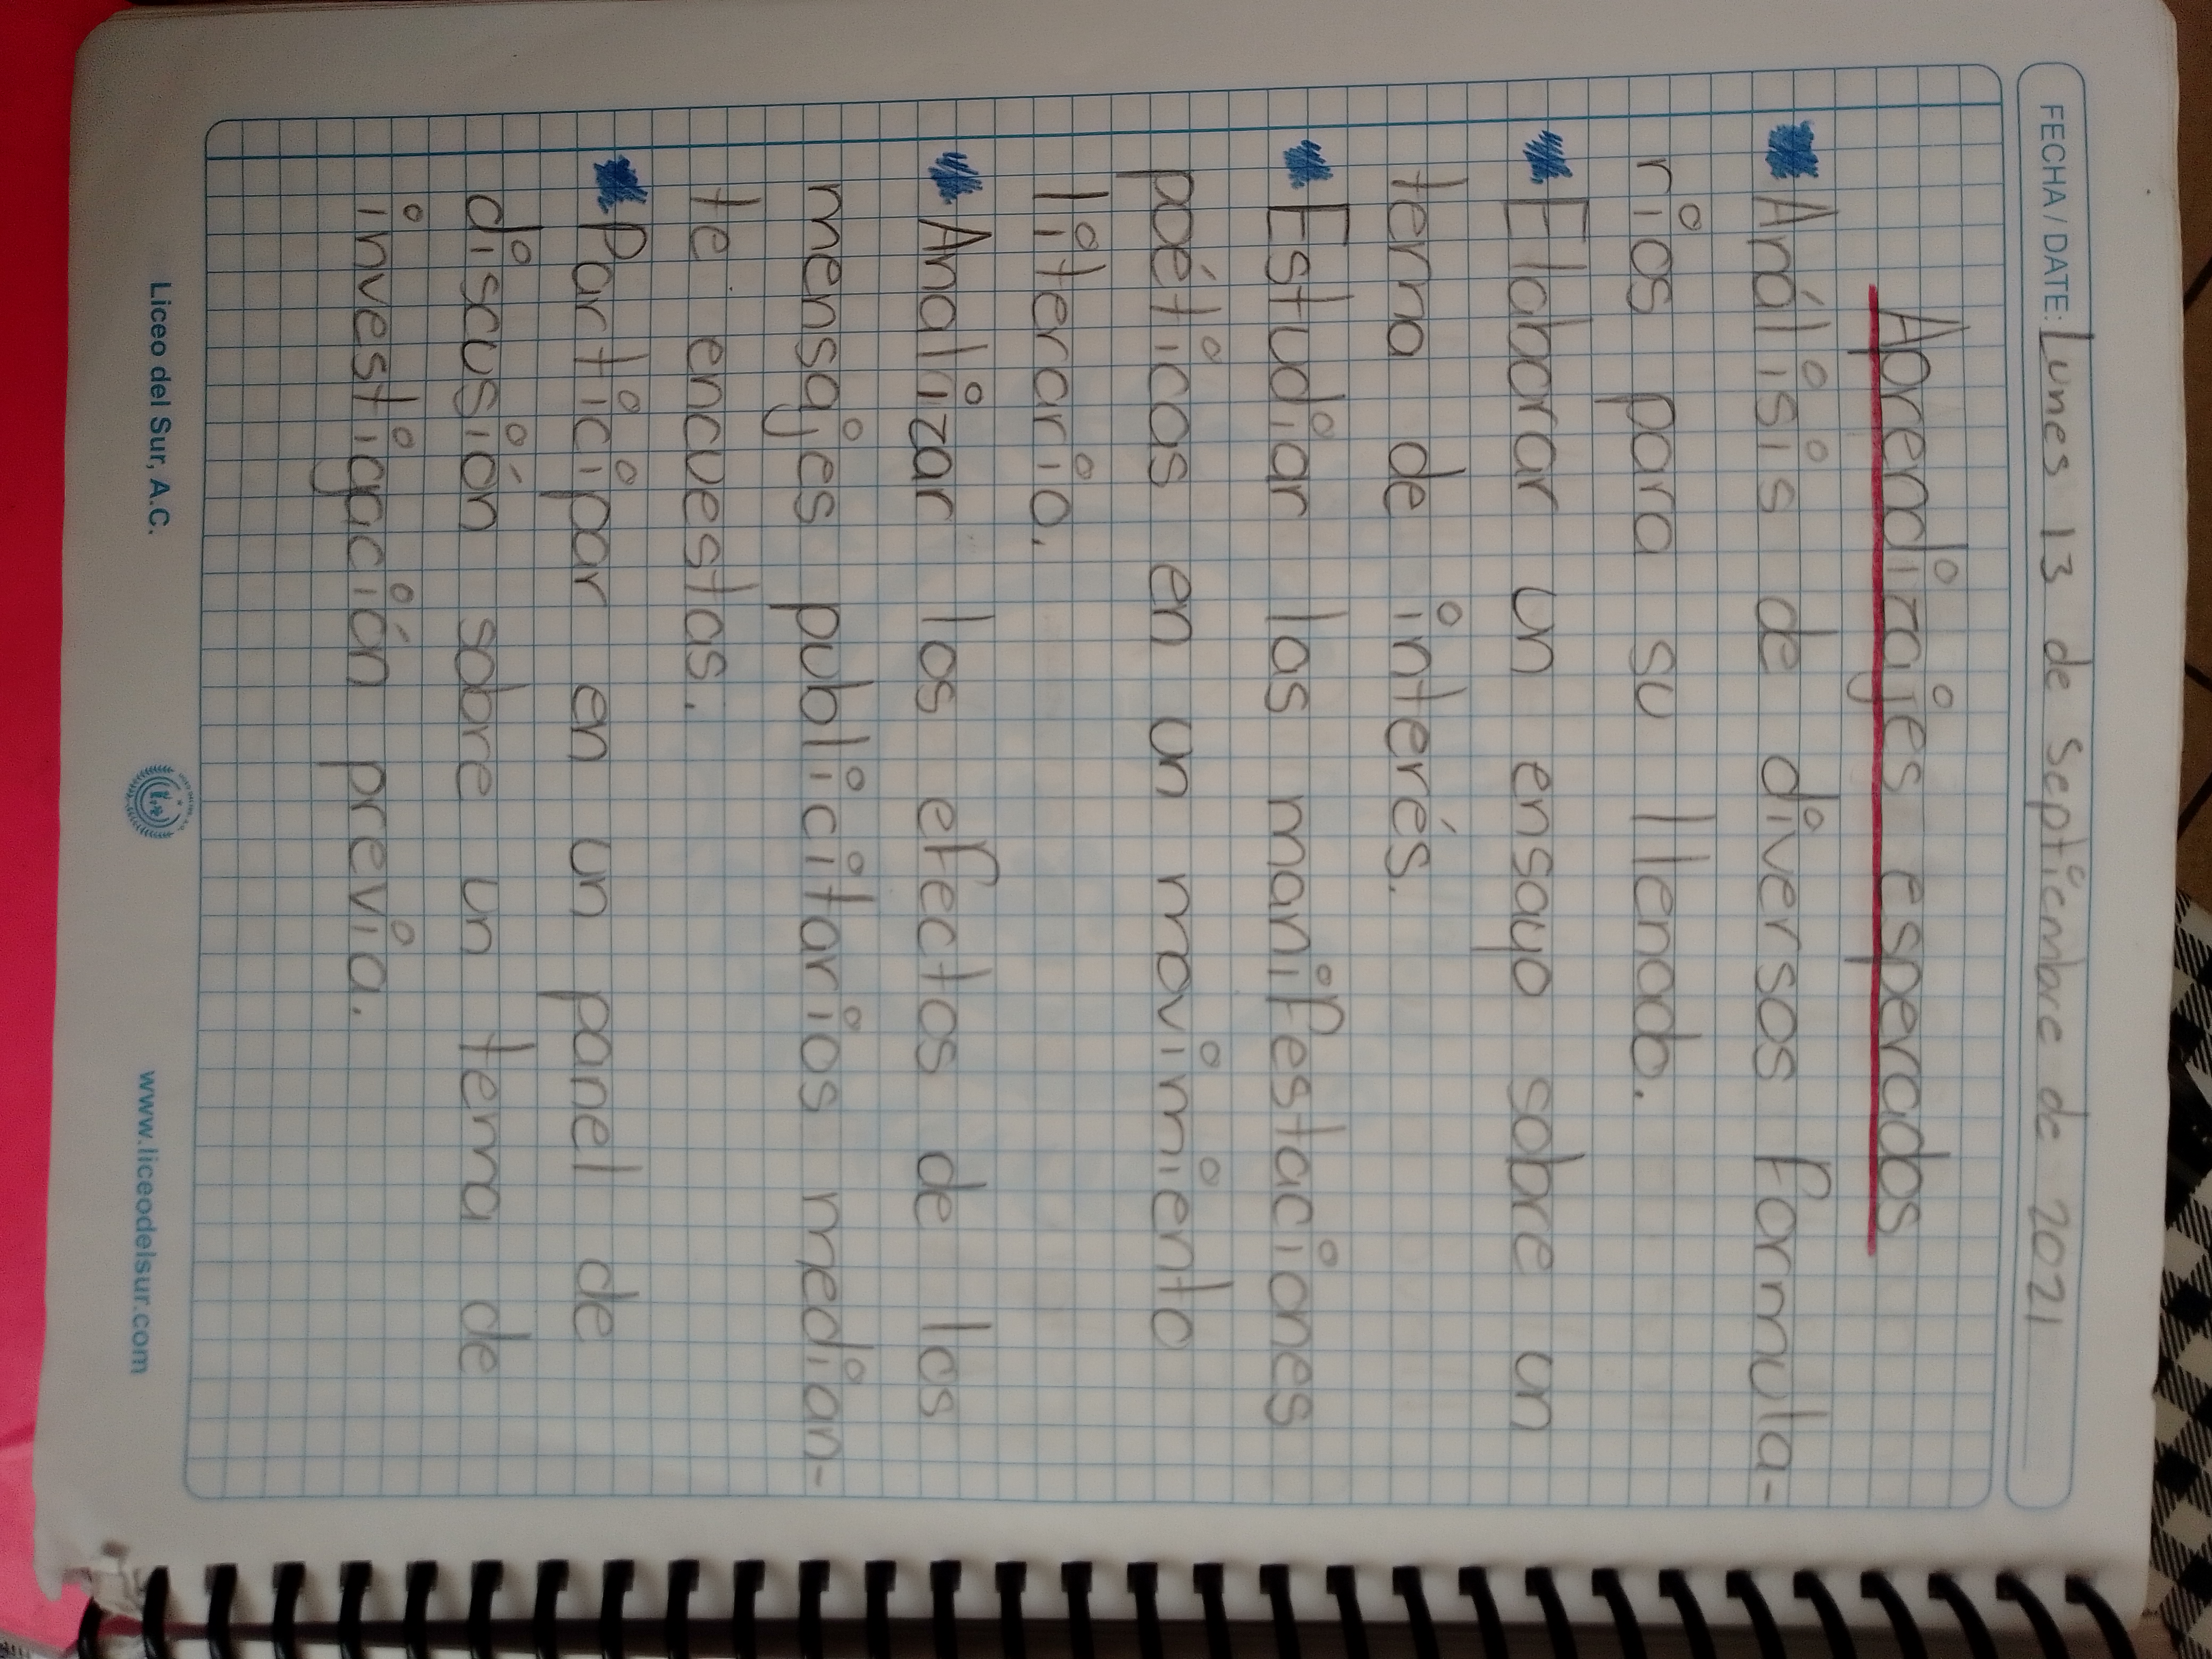 FECHA / DATE: Lunes 13 de Septiembre de 2021
Aprendizajes esperados
Análisis de diversos formula-
rios para su llenado.
Elaborar un ensayo sobre un
tema de interés.
Estudiar las manifestaciones
poéticas en un movimiento
literario.
Analizar los efectos de los
mensajes publicitarios median-
te encuestas.
Participar en un panel de
discusión sobre un tema de
investigación previa.
Liceo del Sur, A.C.
www.liceodelsur.com